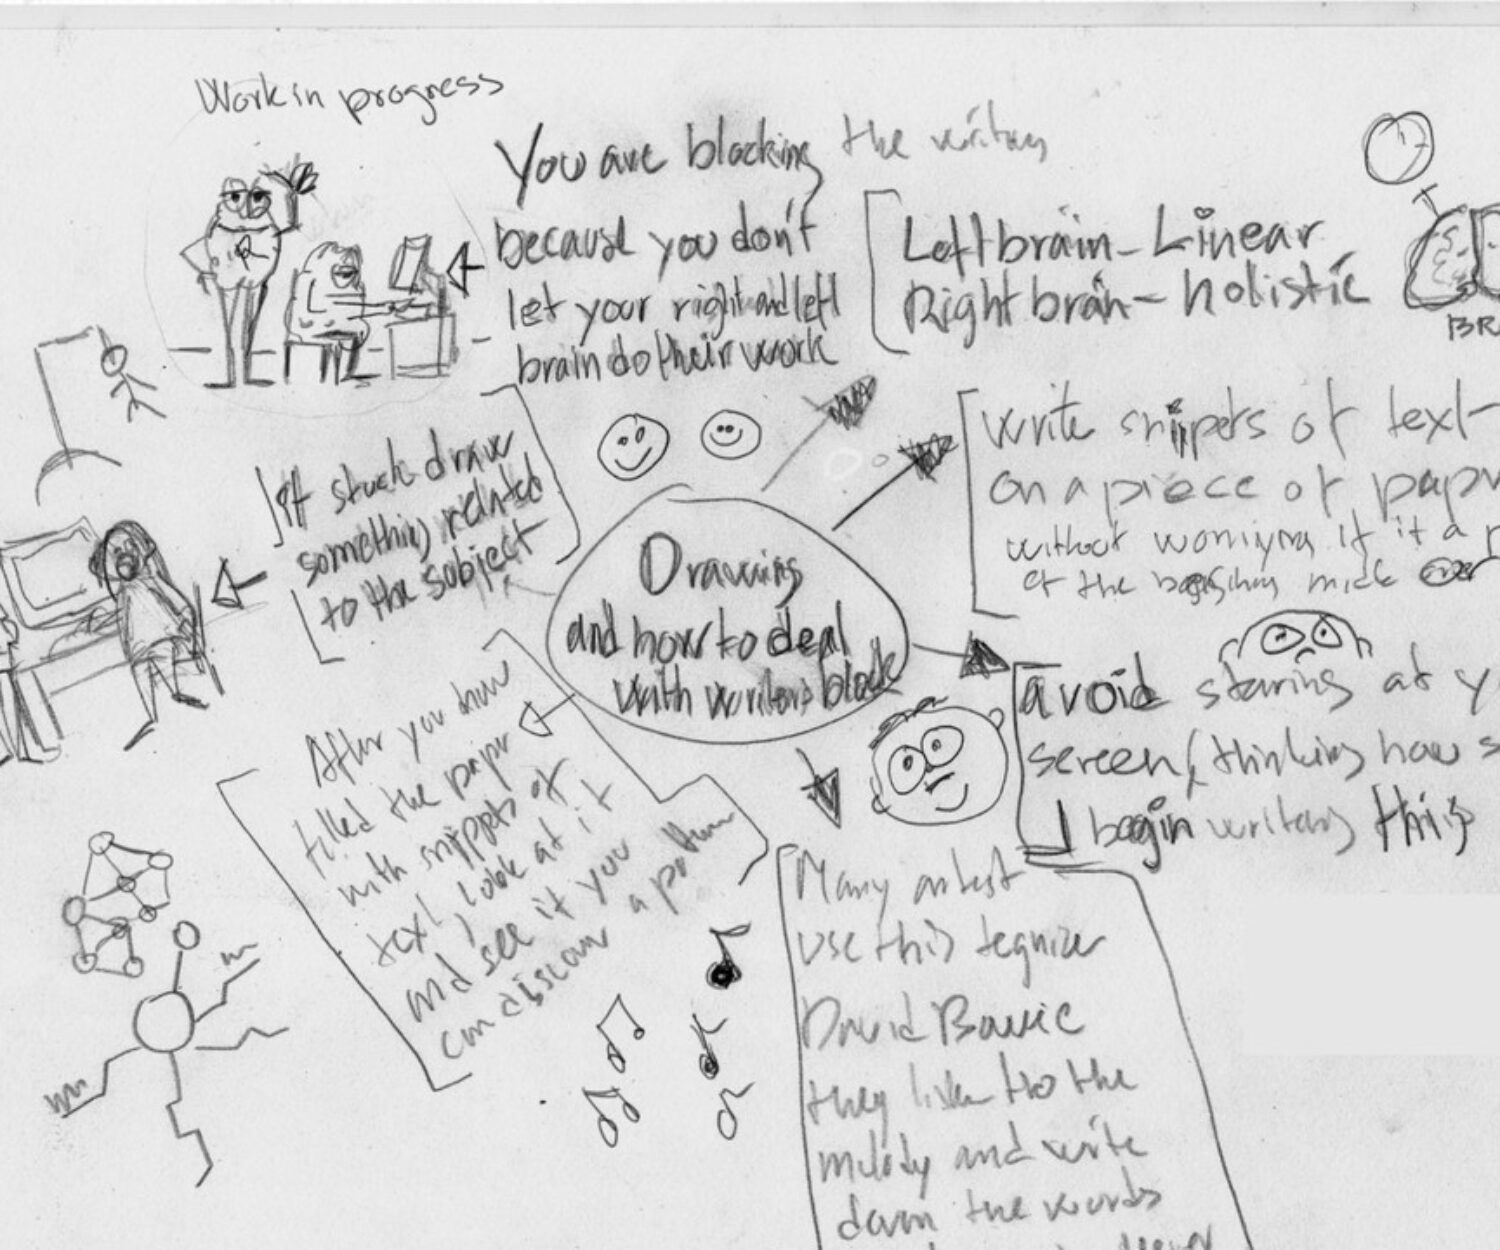 Work in progress
You are blocking the writing
because you don't
let your right and left
brain do their work
Left brain - Linear
Right brain - holistic
BR
Write snippets of text -
on a piece of
without worrying if it a
of the
avoid staring at y
screen, thinking how s
I begin writing this
If stuck draw
something related
to the subject
Drawing
and how to deal
with writers block
After you
filled the papir
with snippets of
text, look at it
and see if you
can a
Many artist
use this
David Bowie
they to the
melody and write
down the words